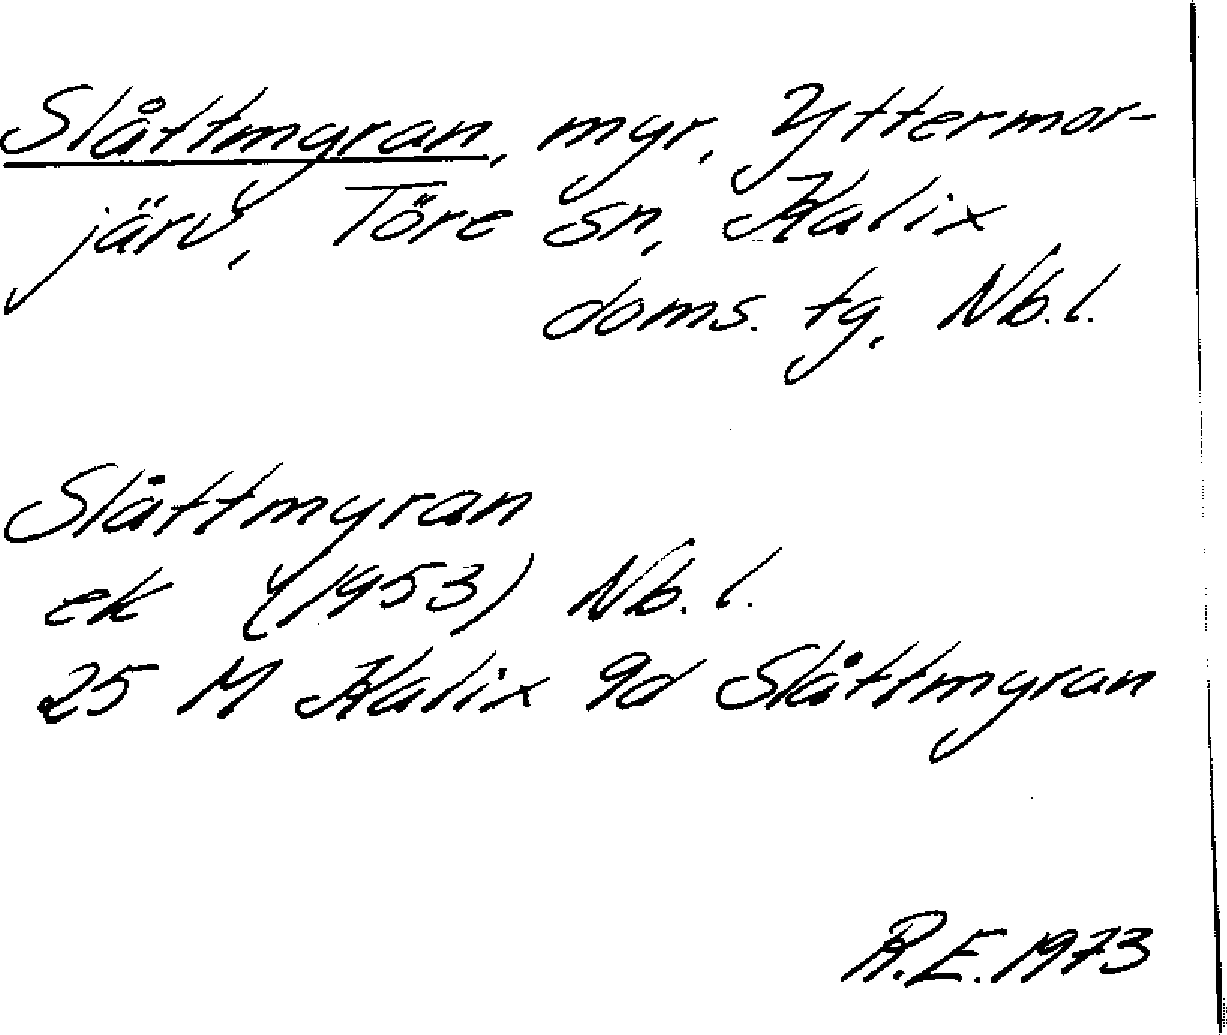 Slåttmyran, myr, Yttermor-
järv, Töre sn, Kalix
doms. tg, Nb.l.
Slåttmyran
ek (1953) Nb.l.
25 M Kalix 9d Slåttmyran
R.E. 1973